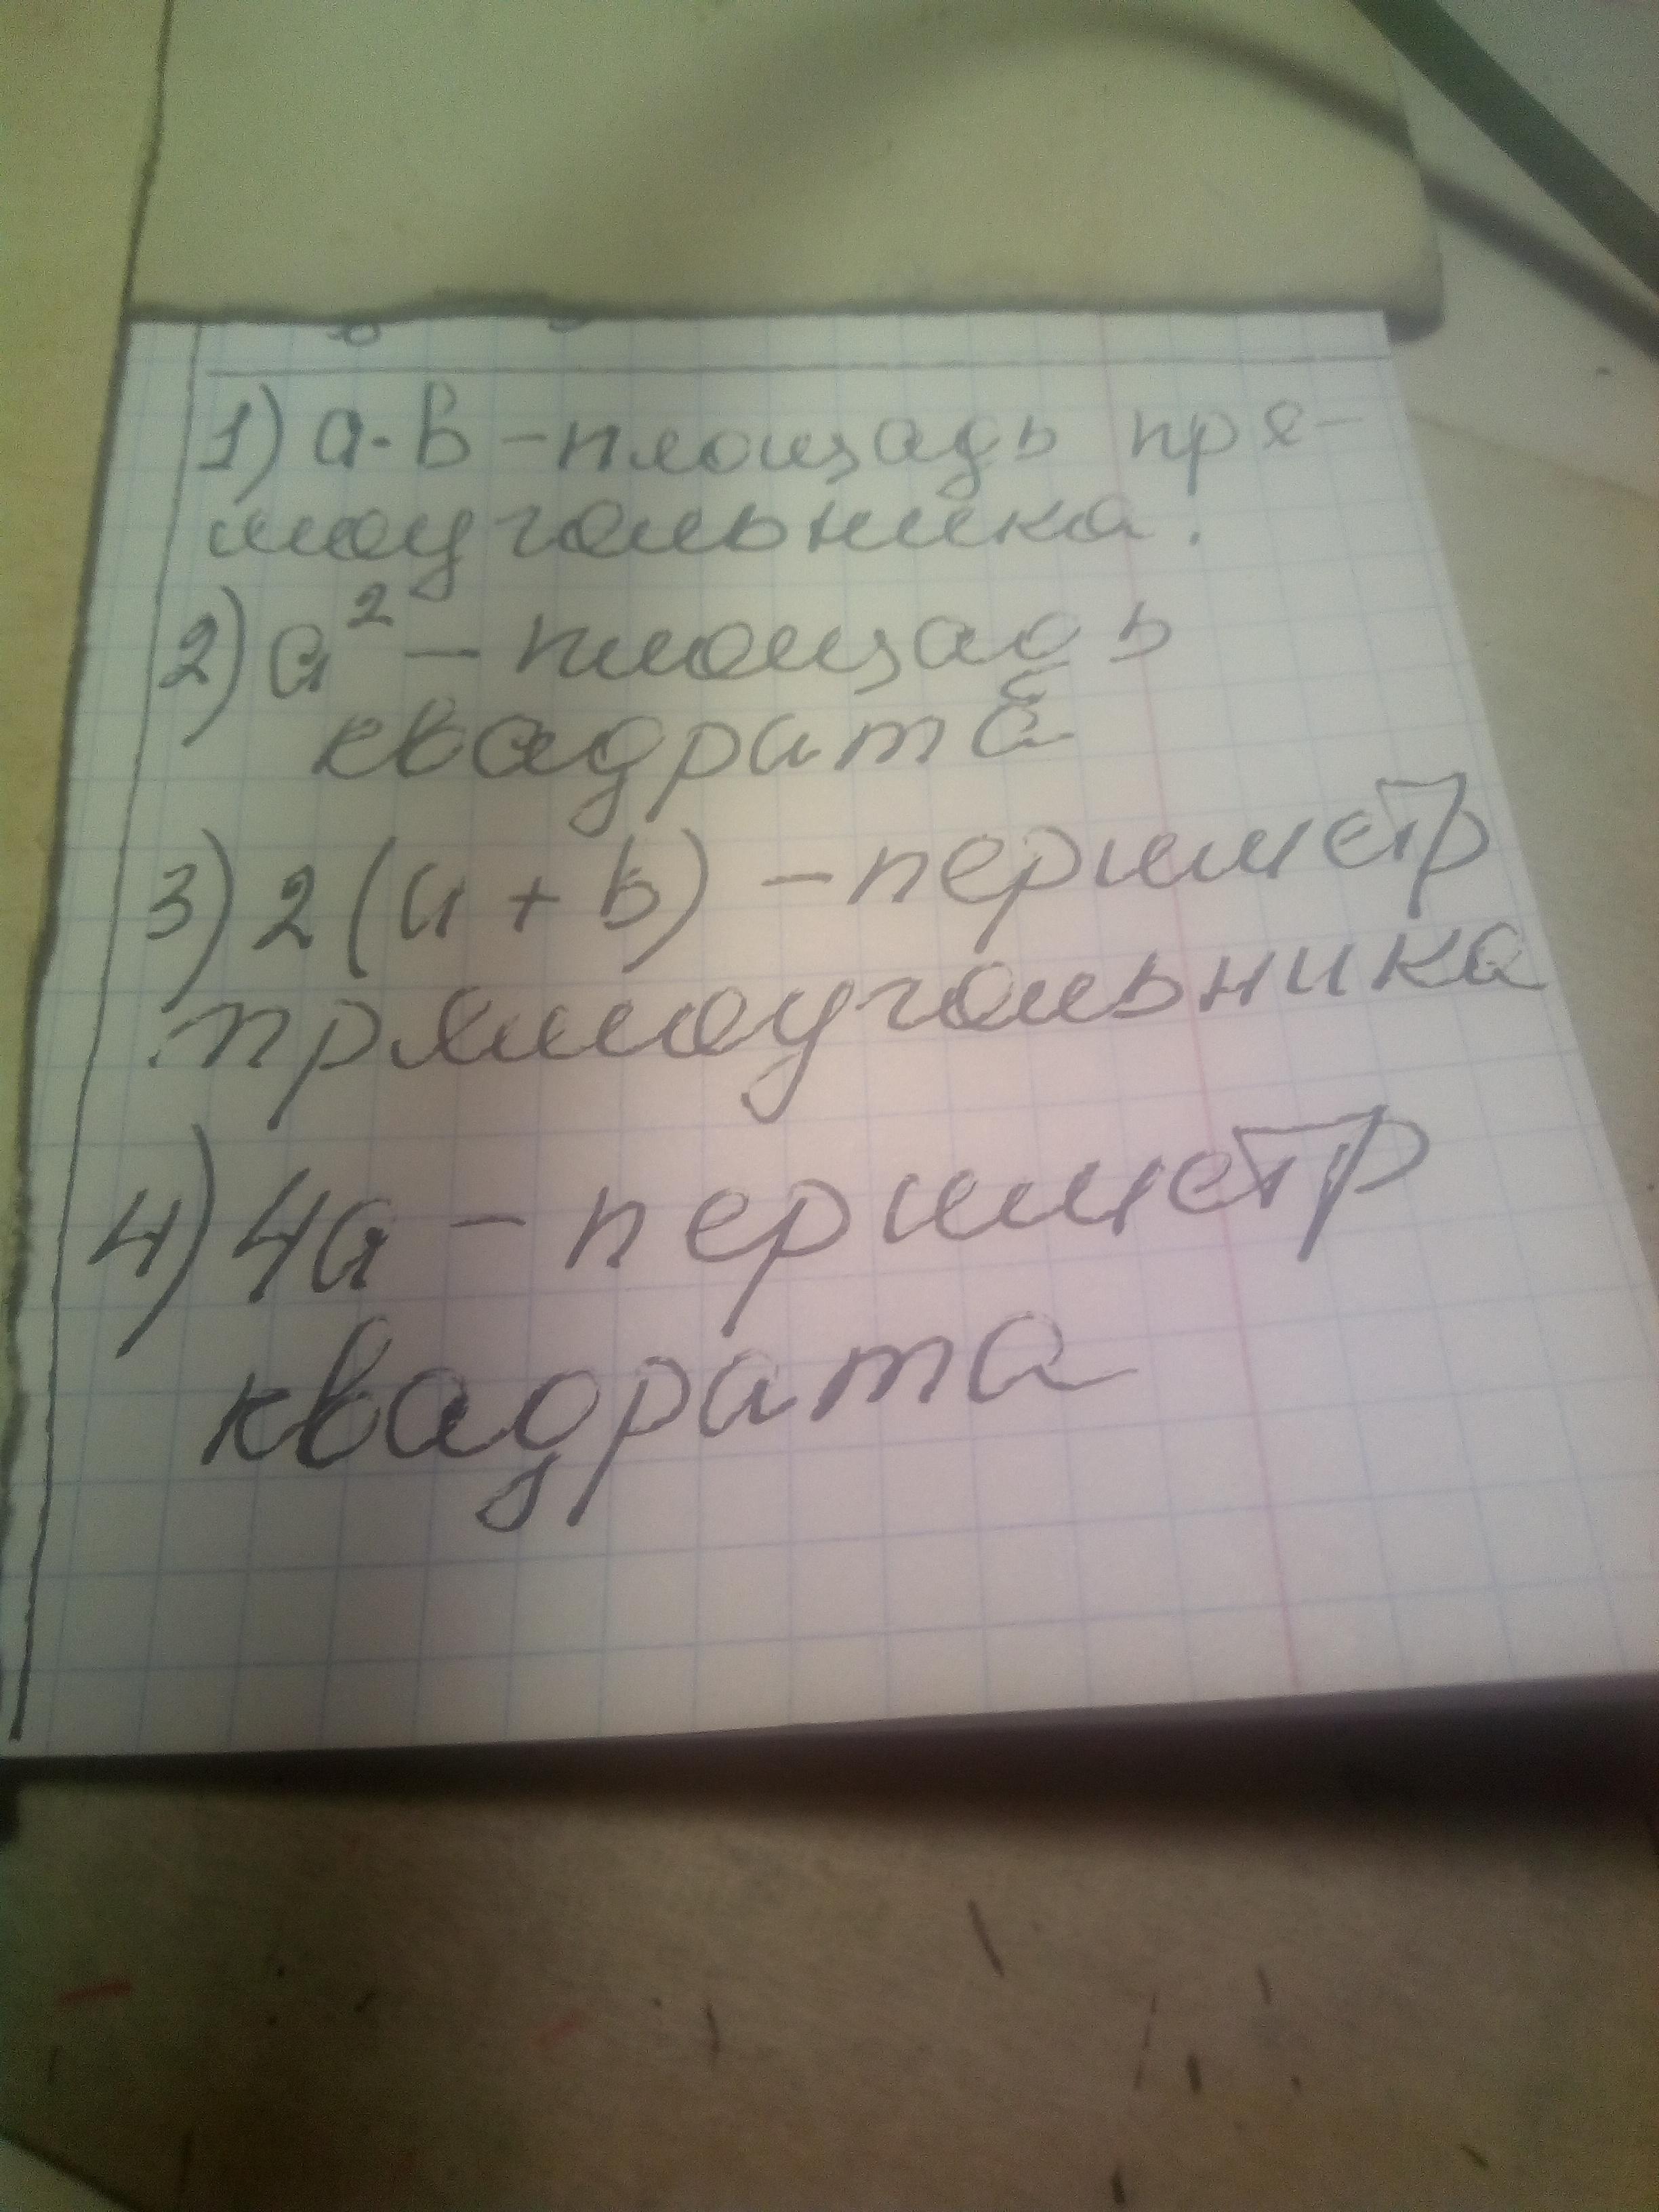 1) a·b - площадь пря-
моугольника.
2) a² - площадь
квадрата
3) 2(a + b) - периметр
прямоугольника
4) 4a - периметр
квадрата